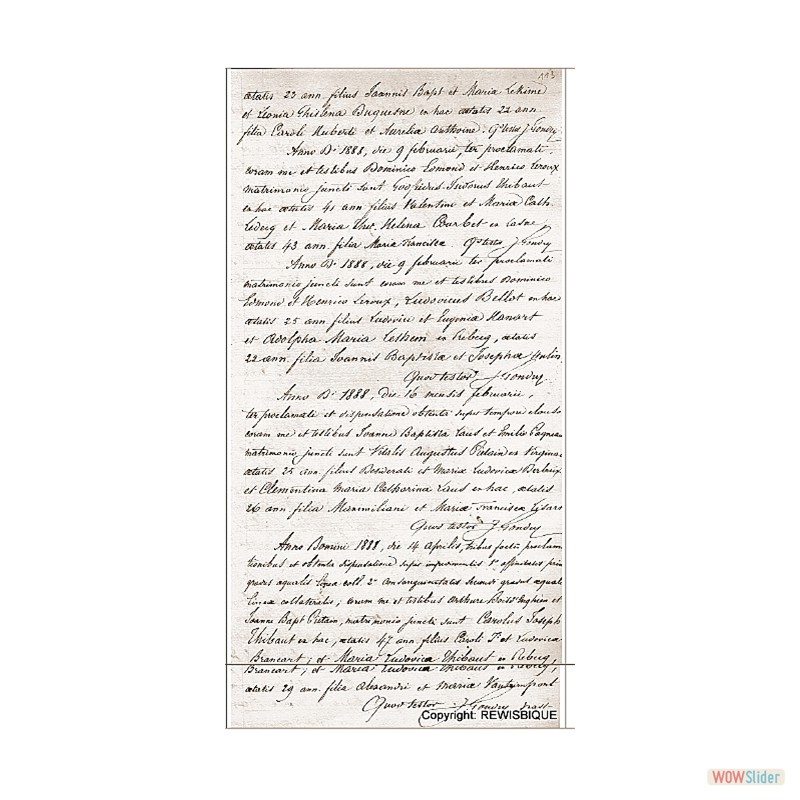 113
ætatis 23 ann. filius Joannis Bapt et Maria Lekime
et Leonia Ghislena Duquesne en hac ætatis 22 ann.
filia Caroli Huberti et Aurelia Anthoine. Q. testor J. Gondry
Anno Di 1888, die 9 februarii, ter proclamati
coram me et testibus Dominico Edmond et Henrico Leroux
matrimonio juncti sunt Isidorus Thibaut
ex hac ætatis 41 ann filius Valentini et Maria Cath.
Leclerq et Maria Ther. Helena Courbet ex
ætatis 43 ann. filia Maria Francisca. Q testor J. Gondry
Anno Di 1888, die 9 februarii ter proclamati
matrimonio juncti sunt coram me et testibus Dominico
Edmond et Henrico Leroux, Ludovicus Bellot ex hac
ætatis 25 ann filius Ludovici et Eugenia Hanart
et Adolpha Maria Lethem ex Rebecq, ætatis
22 ann. filia Joannis Baptista et Josepha Hulin
Quod testor J. Gondry.
Anno Di 1888, die 16 mensis februarii,
ter proclamati et dispensatione obtenta super tempore clauso
coram me et testibus Joanne Baptista Laus et Emilio
matrimonio juncti sunt Vitalis Augustus Pietain ex Virginal
ætatis 25 ann. filius Desiderati et Maria Ludovica Derlaux
et Clementina Maria Catharina Laus ex hac, ætatis
26 ann. filia Maximiliani et Maria Francisca
Quod testor J. Gondry
Anno Domini 1888, die 14 Aprilis, tribus factis proclama
tionibus et obtenta dispensatione super impedimentis 1° affinitatis primi
gradus æqualis linea coll. 2° consanguinitatis secundi gradus æqualis
linea collateralis, coram me et testibus Arthure et
Joanne Bapt Pietain, matrimonio juncti sunt Carolus Joseph
Thibaut ex hac, ætatis 47 ann. filius Caroli Js et Ludovica
Brancart; et Maria Ludovica Thibaut ex Rebecq,
Brancart; et Maria Ludovica Thibaut ex Rebecq,
ætatis 29 ann. filia Alexandri et Maria
Quod testor J. Gondry past.
Copyright: REWISBIQUE
WOWSlider